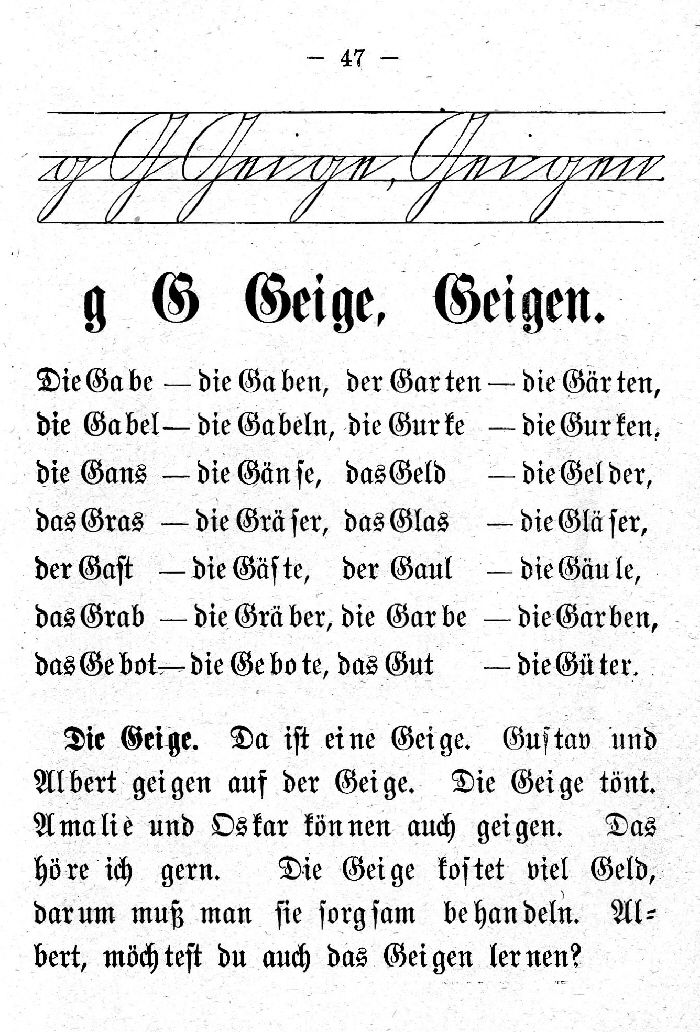 — 47 —
g G Geige, Geigen.
g G Geige, Geigen.
Die Gabe — die Gaben, der Garten — die Gärten,
die Gabel — die Gabeln, die Gurke — die Gurken,
die Gans — die Gänse, das Geld — die Gelder,
das Gras — die Gräser, das Glas — die Gläser,
der Gast — die Gäste, der Gaul — die Gäule,
das Grab — die Gräber, die Garbe — die Garben,
das Gebot — die Gebote, das Gut — die Güter.
Die Geige. Da ist eine Geige. Gustav und
Albert geigen auf der Geige. Die Geige tönt.
Amalie und Oskar können auch geigen. Das
höre ich gern. Die Geige kostet viel Geld,
darum muß man sie sorgsam behandeln. Al-
bert, möchtest du auch das Geigen lernen?